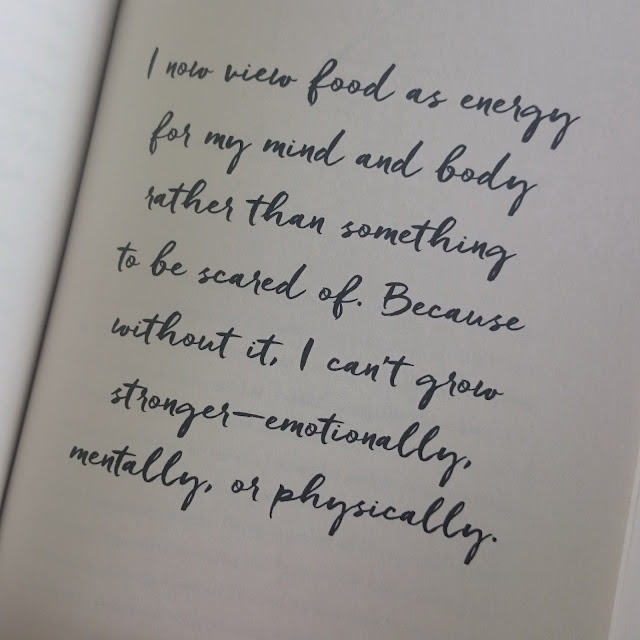 I now view food as energy
for my mind and body
rather than something
to be scared of. Because
without it, I can't grow
stronger—emotionally,
mentally, or physically.